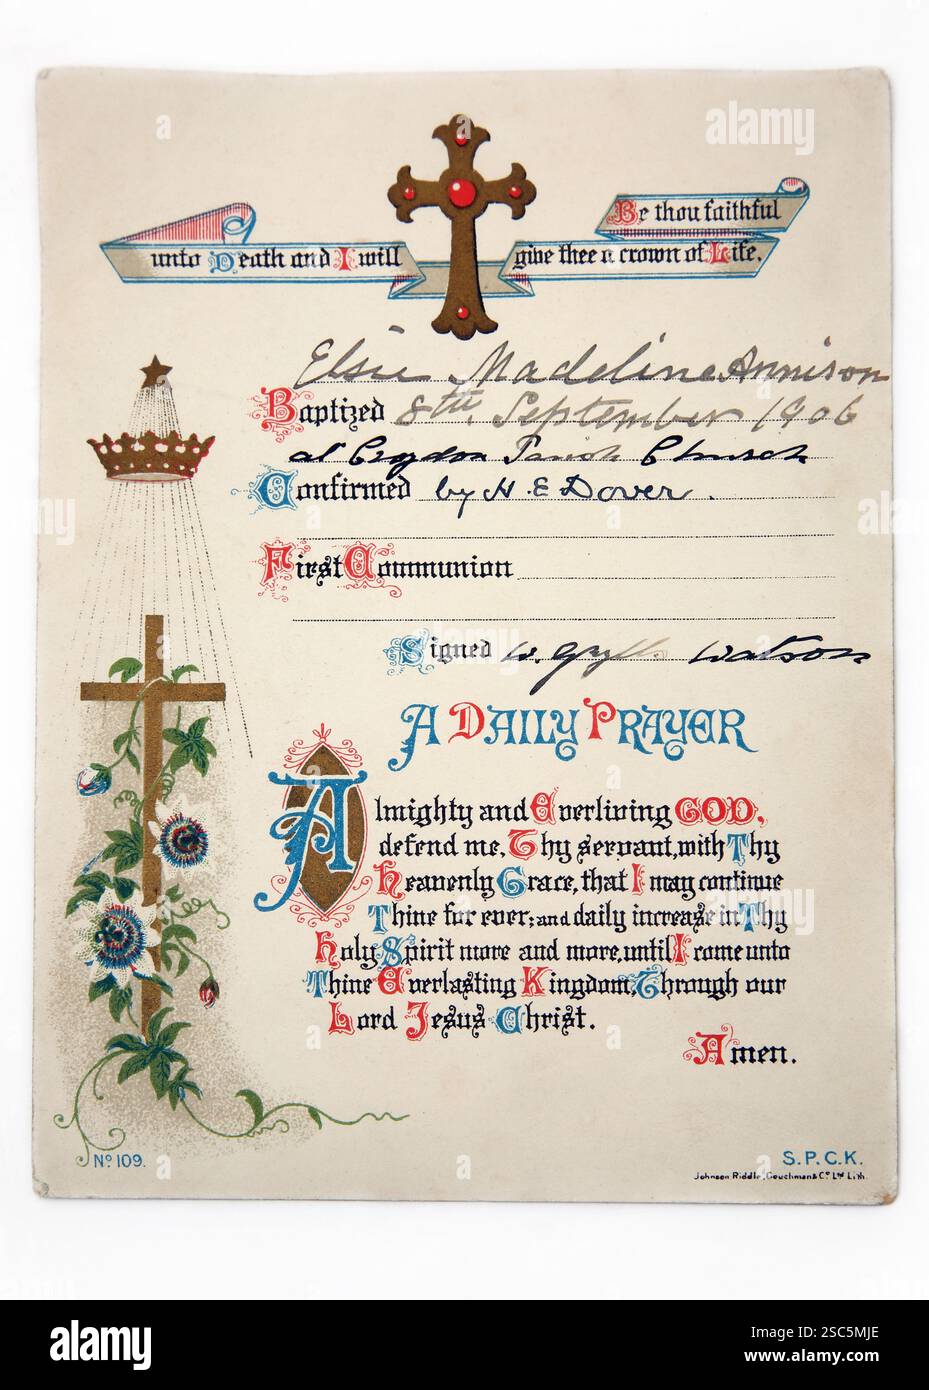 Be thou faithful
unto Death and I will give thee a crown of Life.
Elsie Madeline Annison
Baptized 8th September 1906
at Croydon Parish Church
Confirmed by H. E Dover.
First Communion
Signed W. Watson
A DAILY PRAYER
Almighty and Everliving GOD,
defend me, Thy servant, with Thy
Heavenly Grace, that I may continue
Thine for ever; and daily increase in Thy
Holy Spirit more and more, until I come unto
Thine Everlasting Kingdom, Through our
Lord Jesus Christ.
Amen.
No 109.
S.P.C.K.
Johnson Riddle, Couchman & Co Ltd Lith.
alamy
Image ID: 2SC5MJE
www.alamy.com